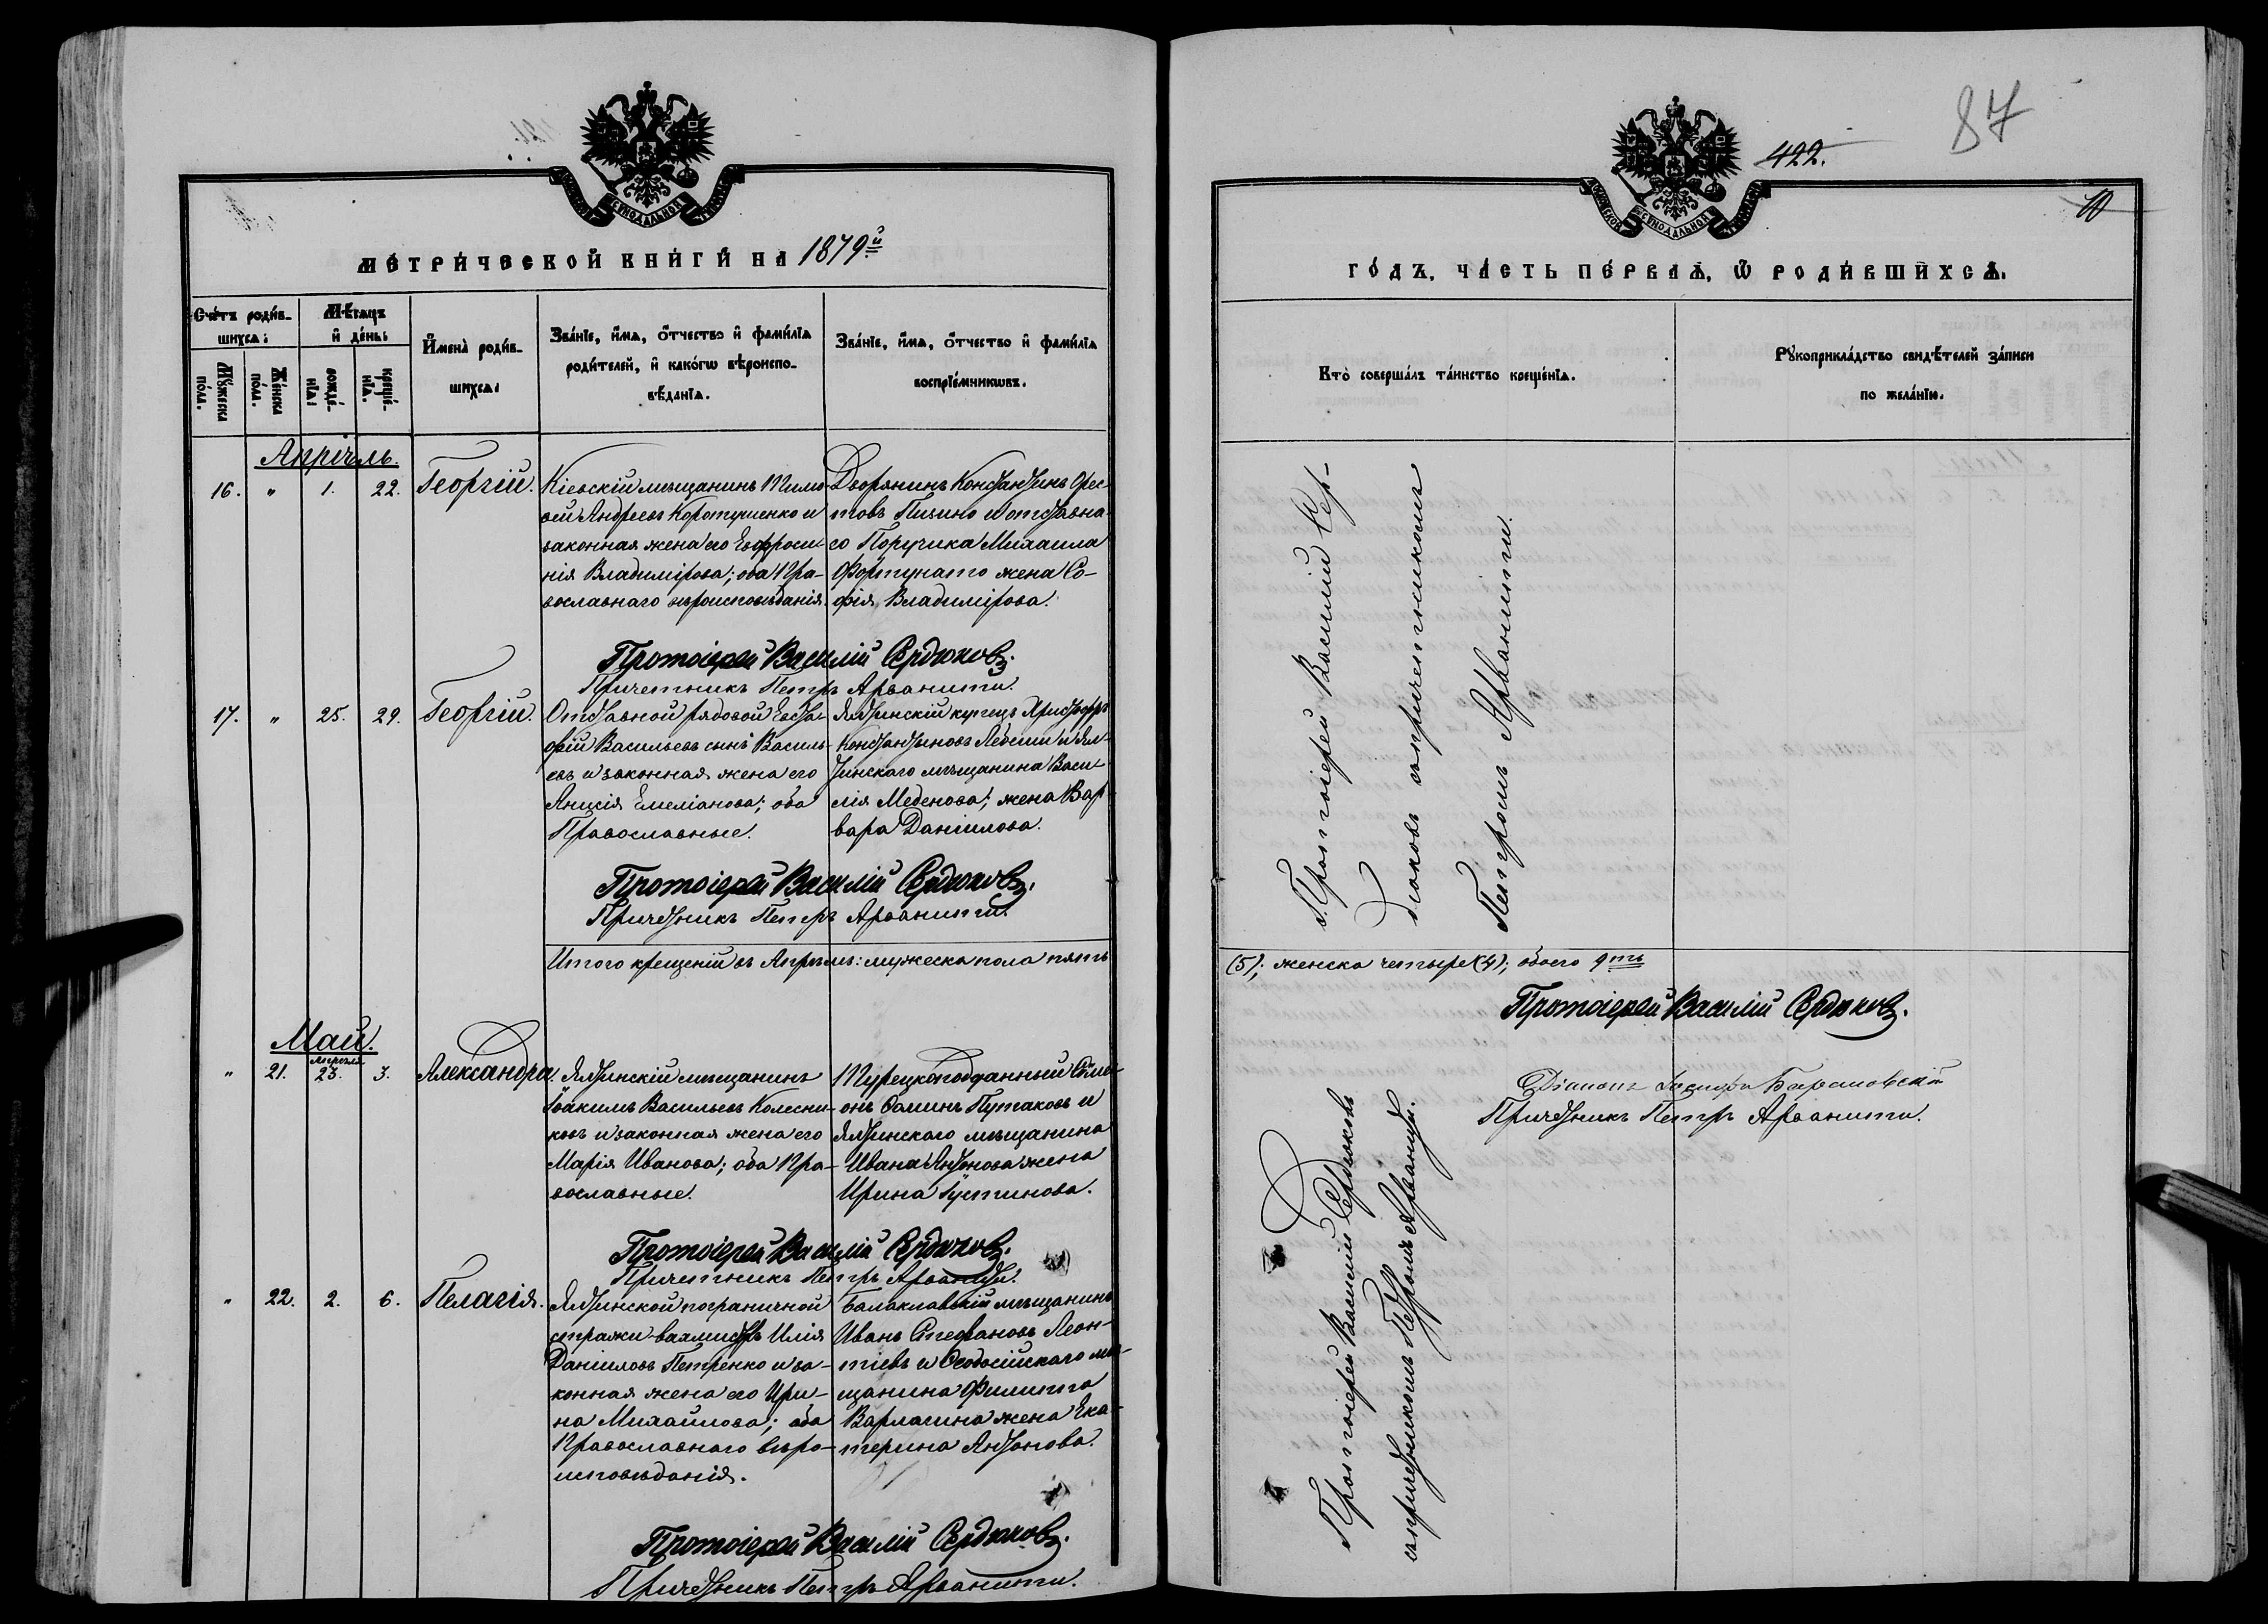 МЕТРИЧЕСКОЙ КНИГИ НА 1879й
Счетъ родив-
шихся:
Мужеска пола.
Женска пола.
Мѣсяцъ
и день:
рождѣ-
нія:
крещѣ-
нія.
Имена родив-
шихся:
Званіе, имя, отчество и фамилія
родителей, и какого вѣроиспо-
вѣданія.
Званіе, имя, отчество и фамилія
воспріемниковъ.
Апрѣль.
16. " 1. 22. Георгій.
Кіевскій мѣщанинъ Тимо-
ѳей Андреевъ Коротушенко и
законная жена его Евфроси-
нія Владимірова; оба Пра-
вославнаго вѣроисповѣданія.
Дворянинъ Константинъ Орес-
товъ Пизино и отставна-
го Поручика Михаила
Фортунато жена Со-
фія Владимірова.
Протоіерей Василій Сердюковъ.
Причетникъ Петръ Арванити.
17. " 25. 29. Георгій.
Отставной рядовой Евста-
фій Васильевъ сынъ Василь-
евъ и законная жена его
Анисія Емеліанова; оба
Православные.
Ялтинскій купецъ Христофоръ
Константиновъ и Ял-
тинскаго мѣщанина Васи-
лія Меденова; жена Вар-
вара Даніилова.
Протоіерей Василій Сердюковъ.
Причетникъ Петръ Арванити.
Итого крещеній въ Апрѣлѣ: мужеска пола пять
Май.
" 21. апрѣля 23. 3. Александра.
Ялтинскій мѣщанинъ
Іоакимъ Васильевъ Колесни-
ковъ и законная жена его
Марія Иванова; оба Пра-
вославные.
Турецкоподданный Симе-
онъ Ѳоминъ Путаковъ и
Ялтинскаго мѣщанина
Ивана Антонова жена
Ирина Іустинова.
Протоіерей Василій Сердюковъ.
Причетникъ Петръ Арванити.
" 22. 2. 6. Пелагія.
Ялтинской пограничной
стражи вахмистръ Илія
Даніиловъ Петренко и за-
конная жена его Ири-
на Михайлова; оба
Православнаго вѣро-
исповѣданія.
Балаклавскій мѣщанинъ
Иванъ Стефановъ Леон-
тіевъ и Ѳеодосійскаго мѣ-
щанина Филиппа
Варлагина жена Ека-
терина Антонова.
Протоіерей Василій Сердюковъ.
Причетникъ Петръ Арванити.
422.
87
10
ГОДЪ, ЧАСТЬ ПЕРВАЯ, Ѿ РОДИВШИХСЯ.
Кто совершалъ таинство крещенія.
Рукоприкладство свидѣтелей записи
по желанію.
Протоіерей Василій Сер-
дюковъ съ причетникомъ
Петромъ Арванити.
(5); женска четыре (4); обоего 9ть
Протоіерей Василій Сердюковъ.
Діаконъ Іосифъ Барановскій
Причетникъ Петръ Арванити.
Протоіерей Василій Сердюковъ
съ причетникомъ Петромъ Арванити.